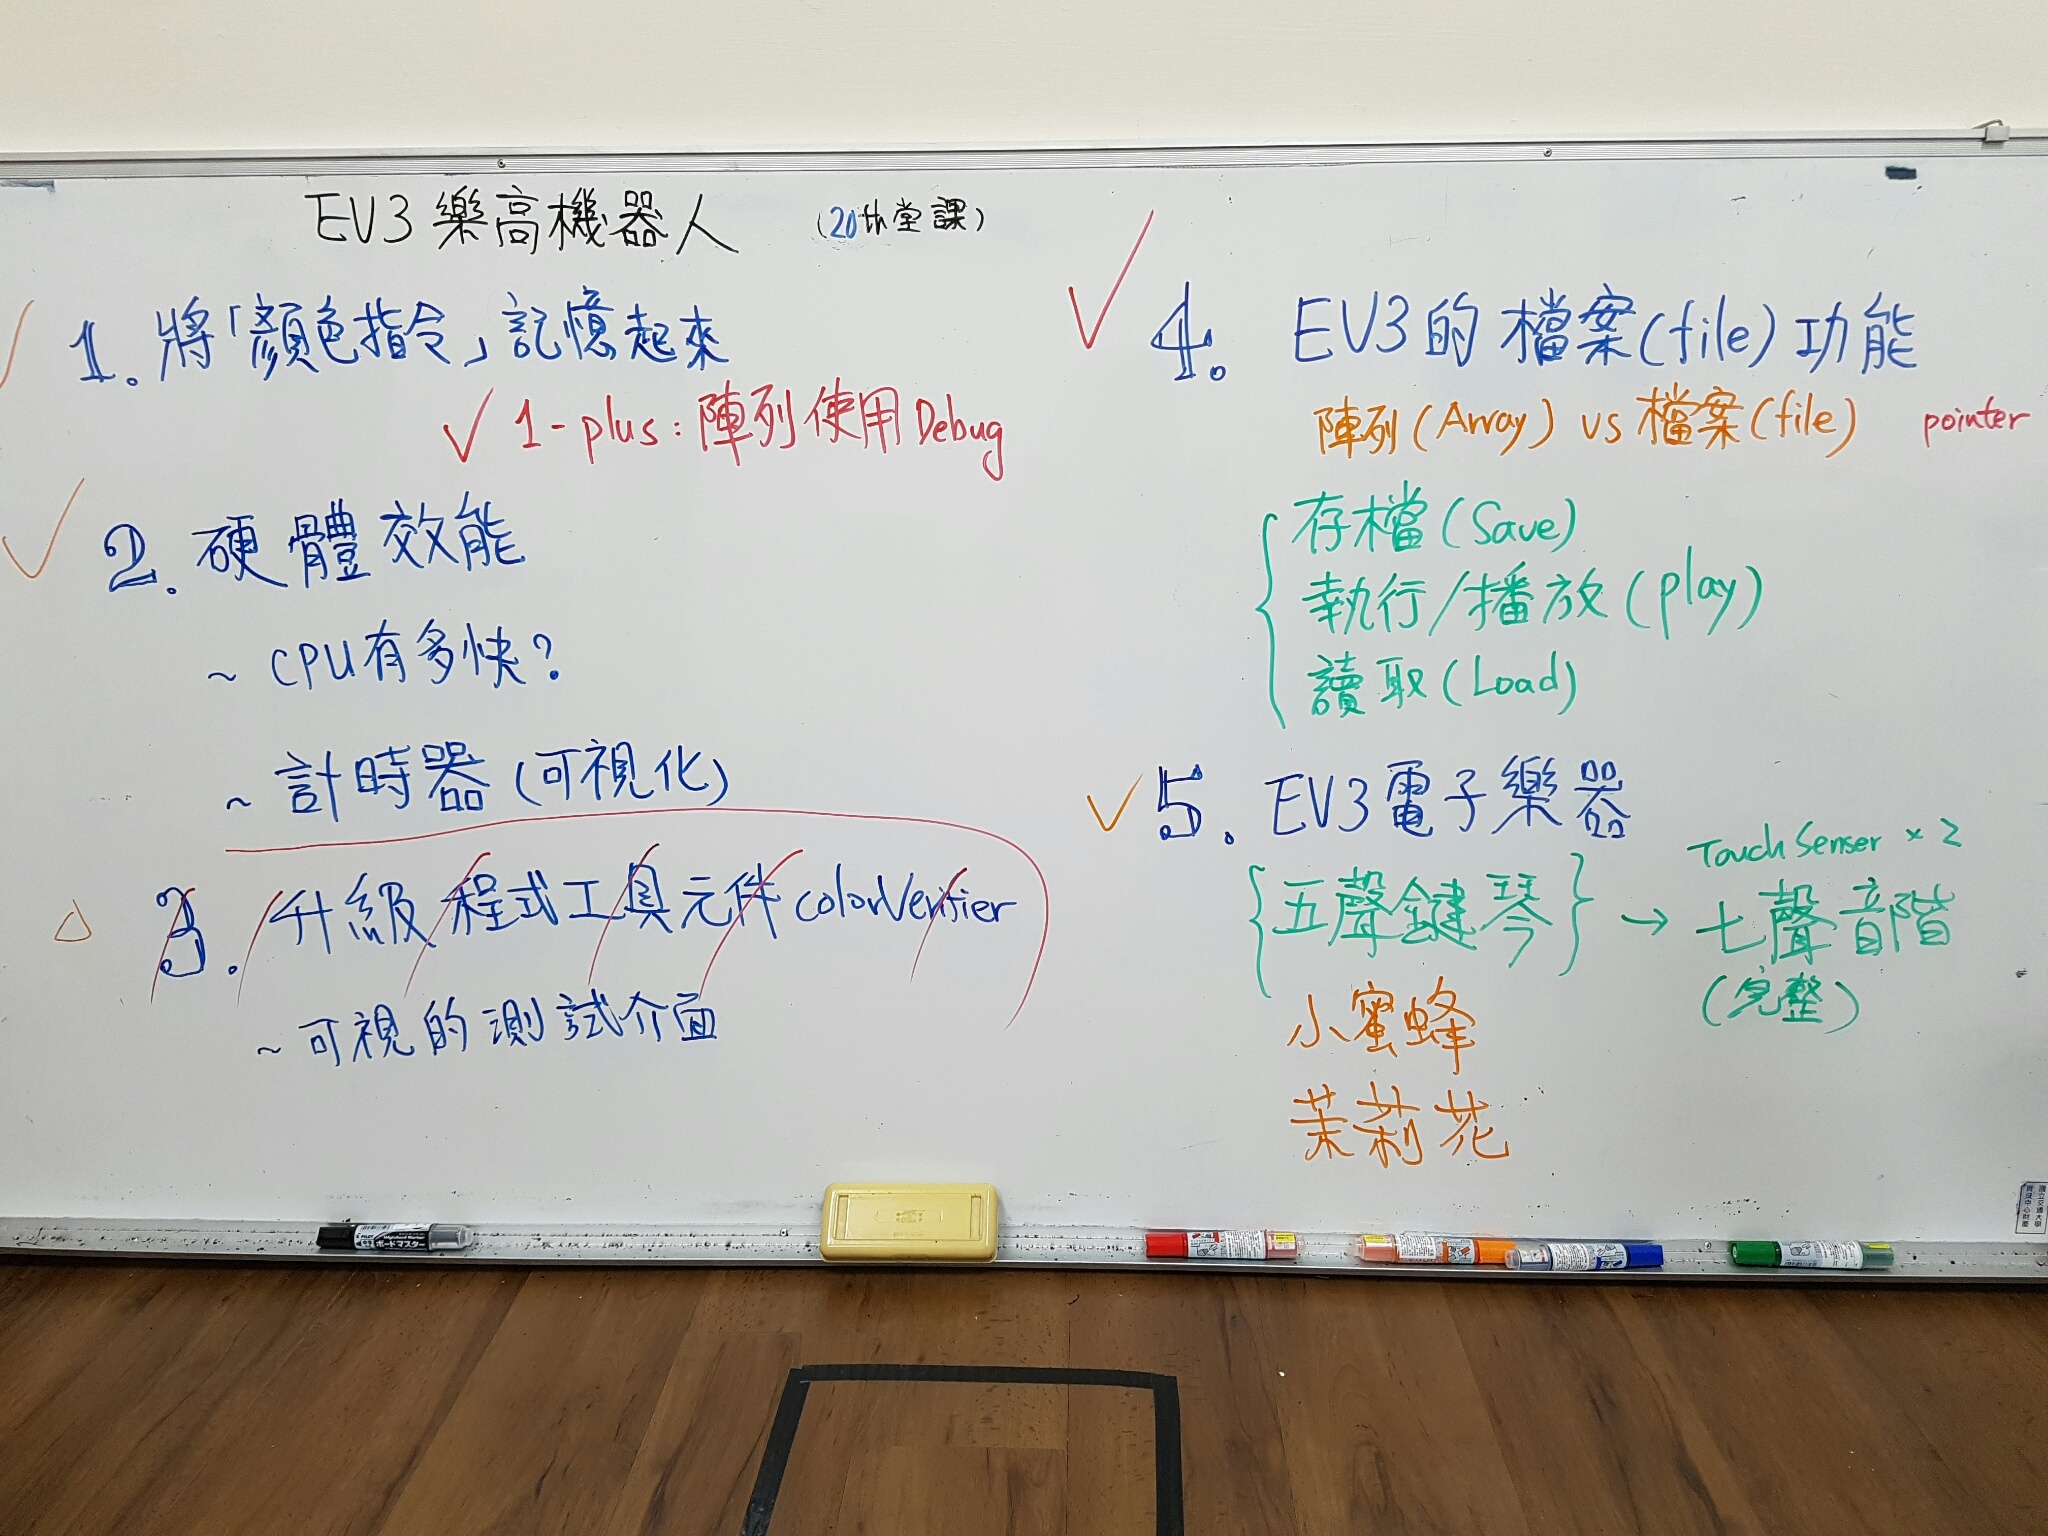 EV3樂高機器人 (20th堂課)
1. 將「顏色指令」記憶起來
1-plus: 陣列使用Debug
2. 硬體效能
~ CPU有多快?
~ 計時器(可視化)
3. 升級程式工具元件colorVerifier
~可視的測試介面
4. EV3的檔案(file)功能
陣列(Array) vs 檔案(file) pointer
存檔(Save)
執行/播放(play)
讀取(Load)
5. EV3電子樂器
Touch Senser × 2
{五聲鍵琴} → 七聲音階
(完整)
小蜜蜂
茉莉花
PILOT
ボードマスター